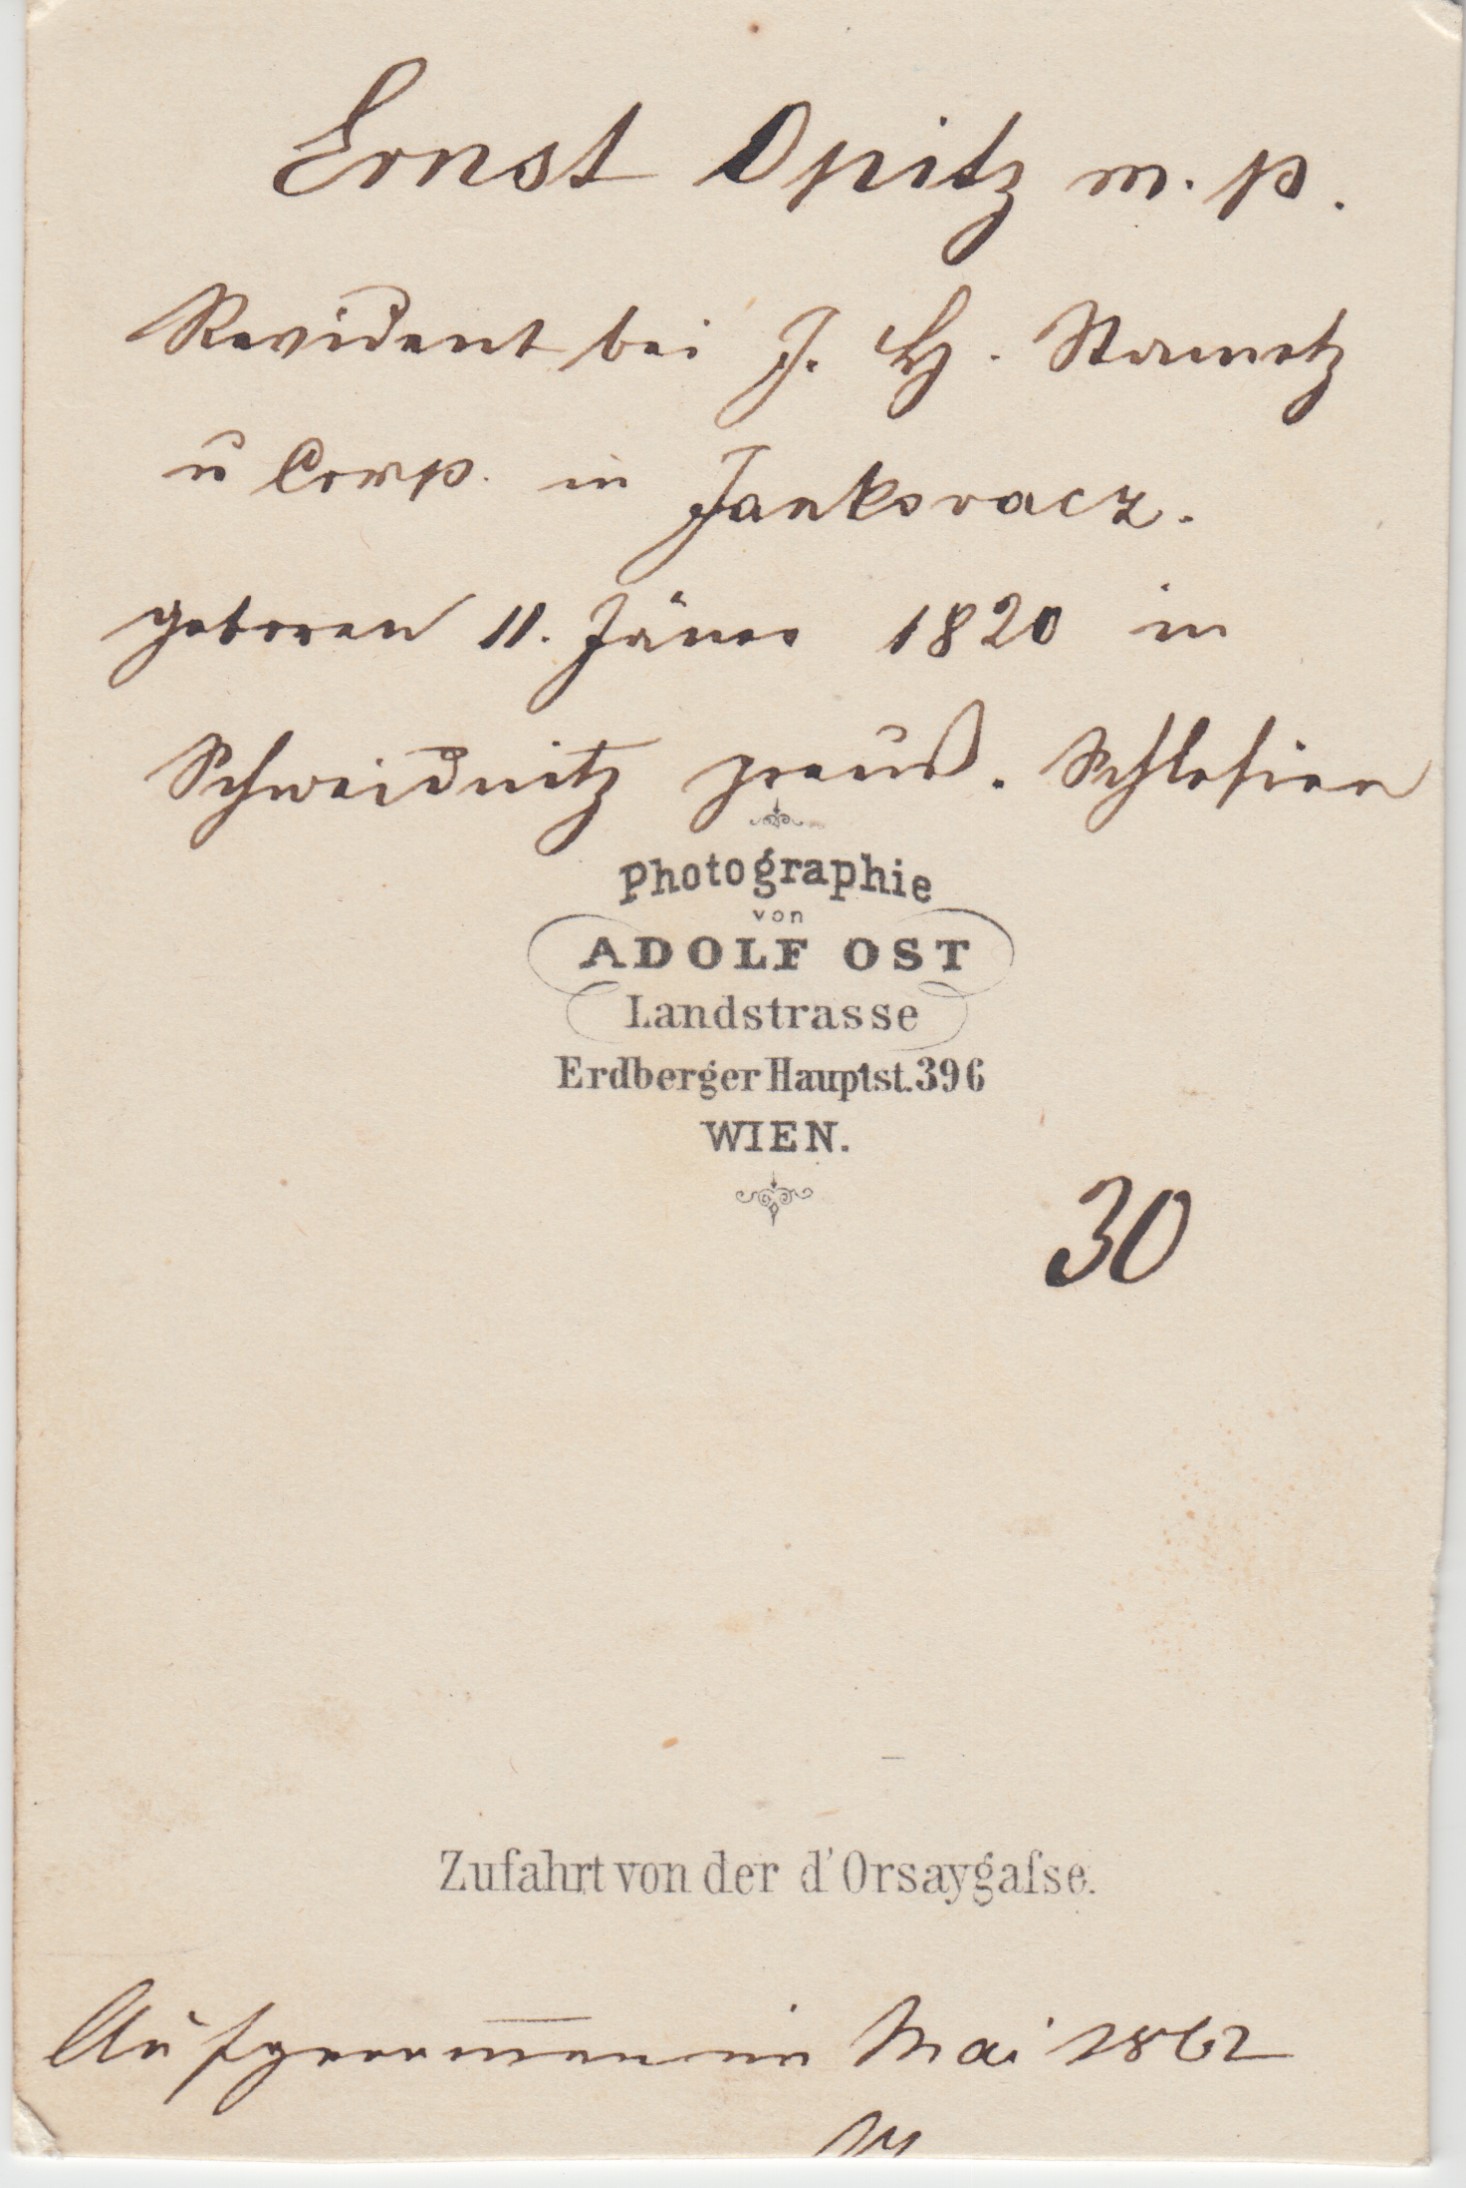 Ernst Opitz m. p.
Revident bei J. H. Stametz
u Comp. in Jankovacz.
geboren 11. Jäner 1820 in
Schweidnitz preuß. Schlesien
Photographie
von
ADOLF OST
Landstrasse
Erdberger Hauptst. 396
WIEN.
30
Zufahrt von der d'Orsaygaſse.
Aufgenom̄en im Mai 1862